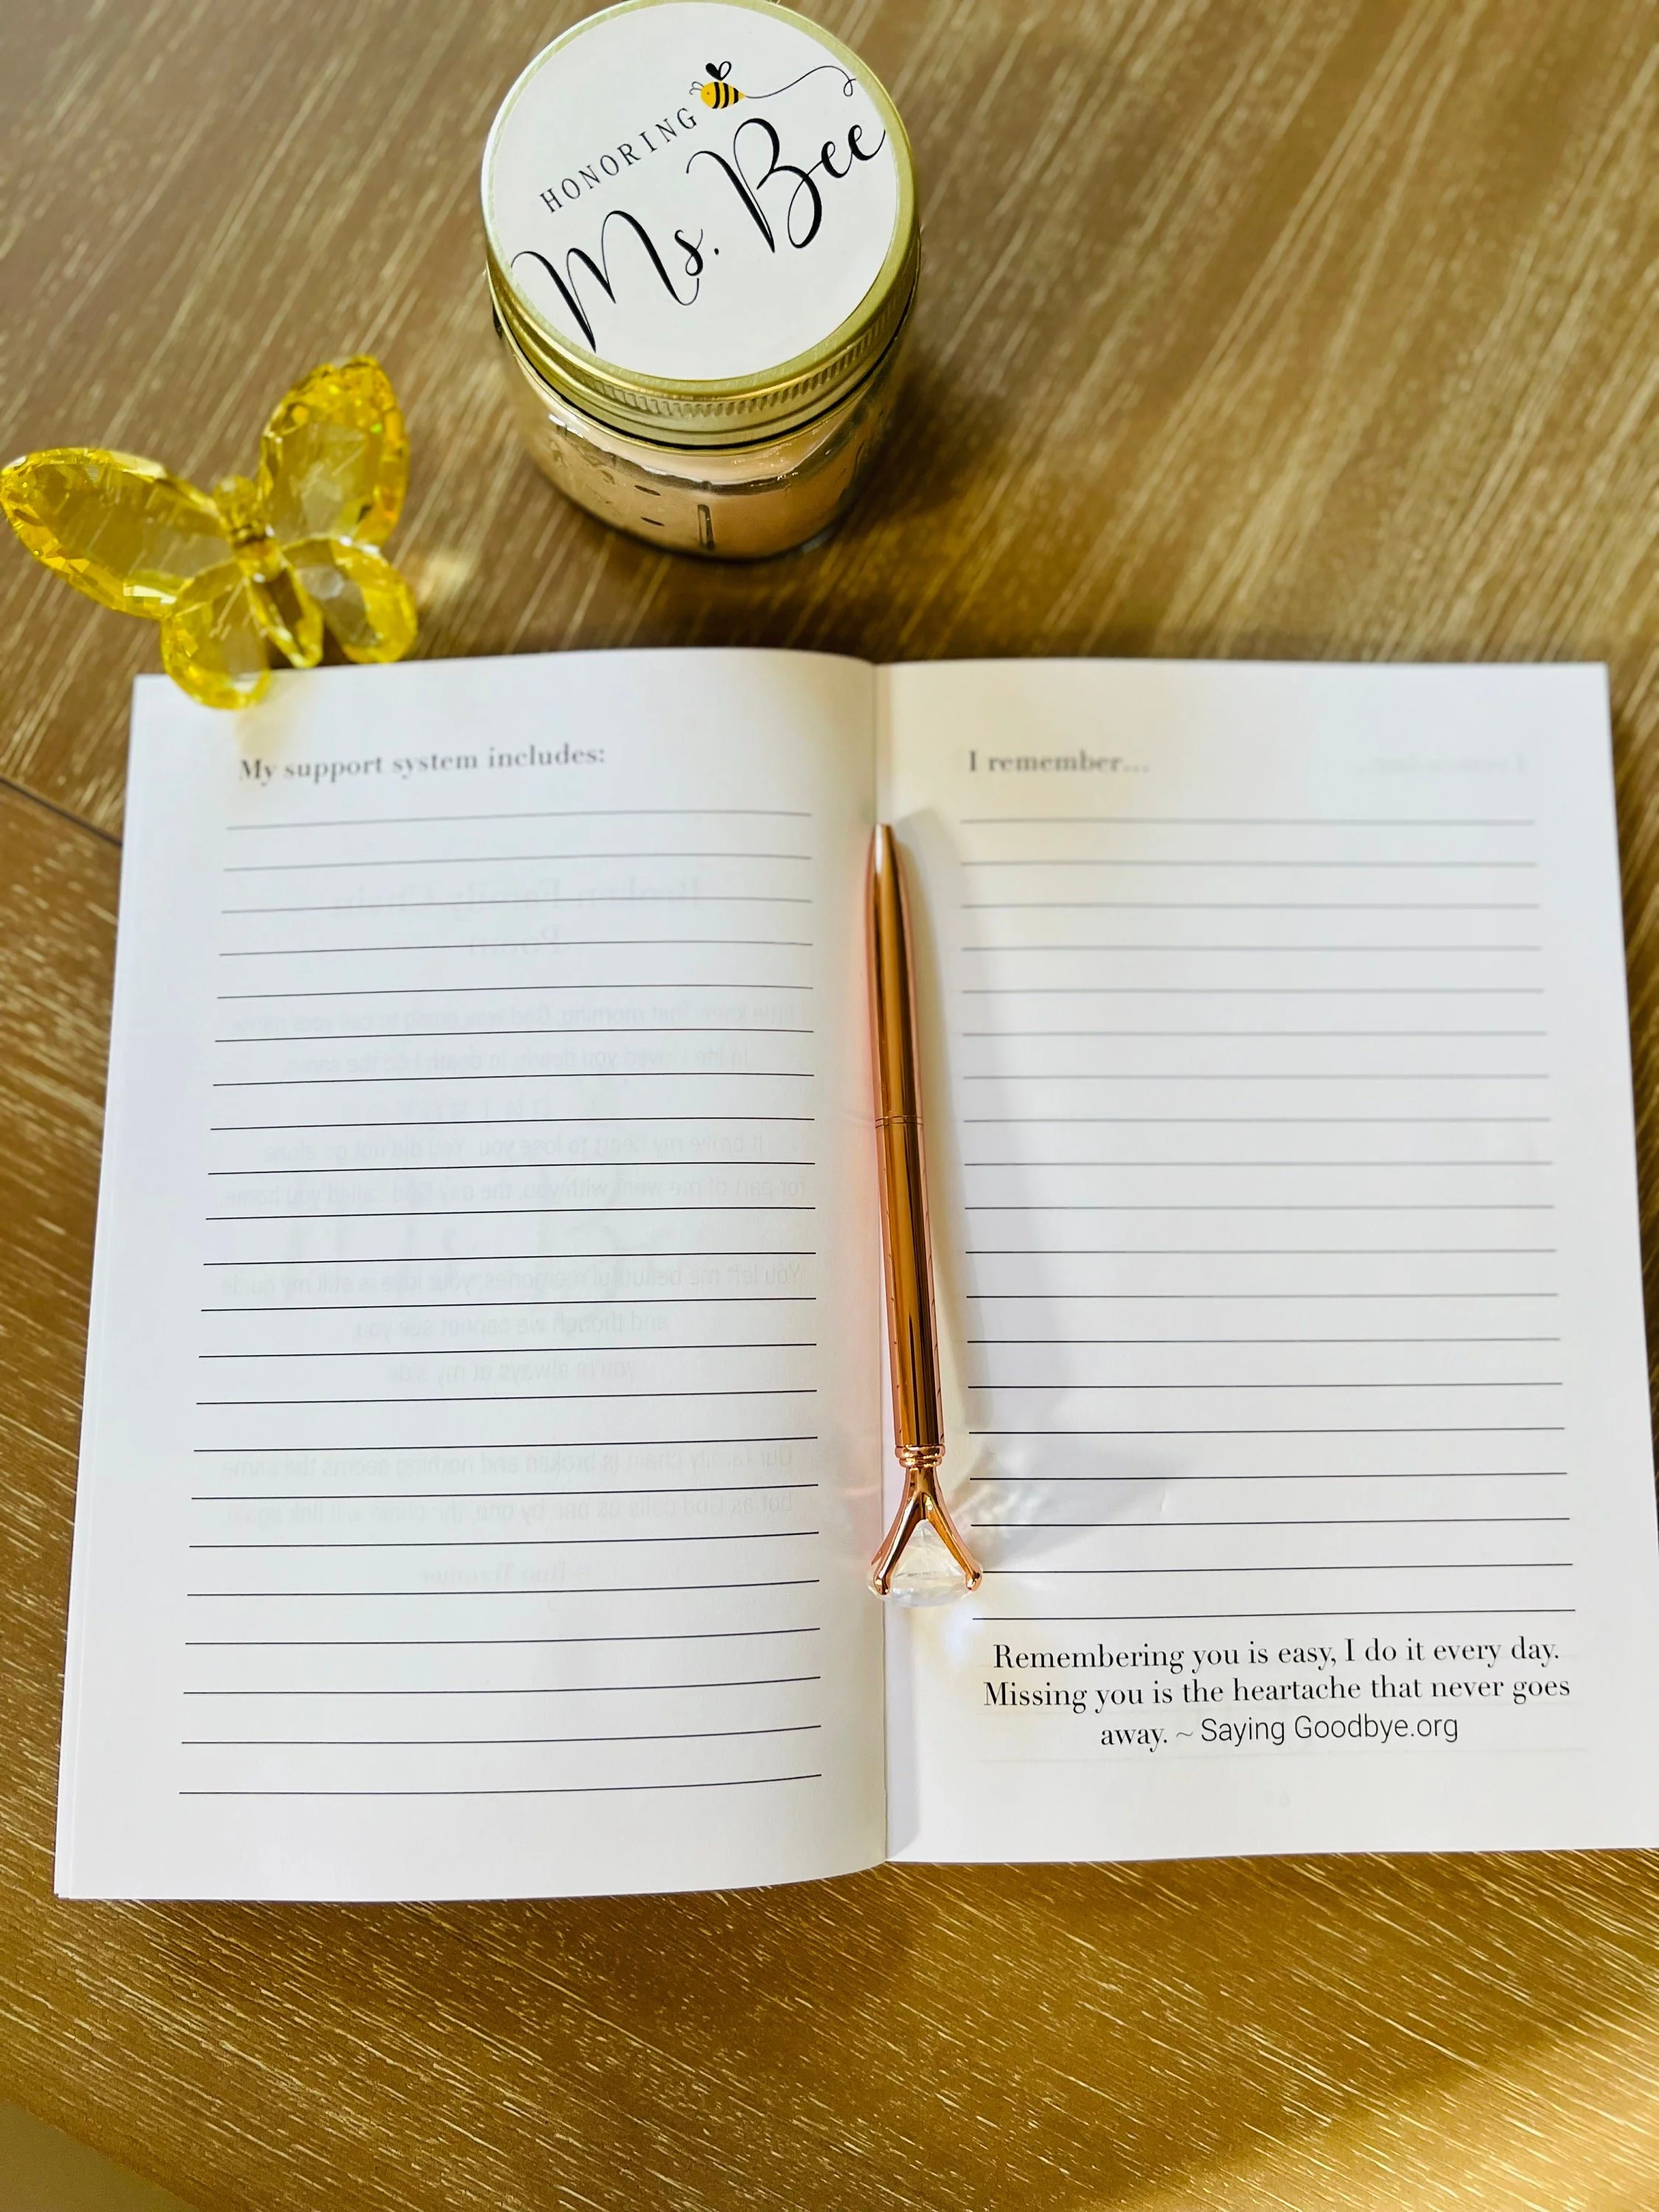 HONORING
Ms. Bee
My support system includes:
I remember...
Remembering you is easy, I do it every day.
Missing you is the heartache that never goes
away. ~ Saying Goodbye.org